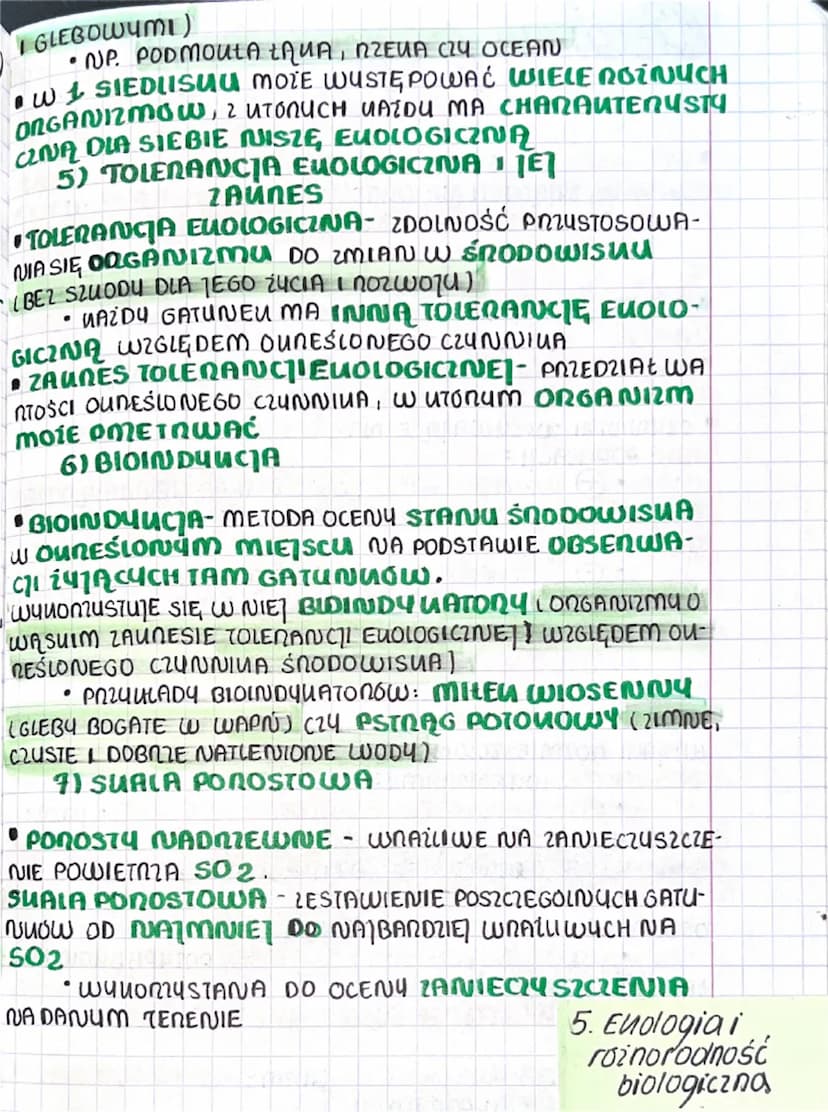 I GLEBOWYMI)
• NP. PODMOKŁA ŁĄKA, RZEKA CZY OCEAN
• W 1 SIEDLISKU MOŻE WYSTĘPOWAĆ WIELE ROŻNYCH
ORGANIZMÓW, Z KTÓRYCH KAŻDY MA CHARAKTERYSTY
CZNĄ DLA SIEBIE NISZĘ EKOLOGICZNĄ
5) TOLERANCJA EKOLOGICZNA I JEJ
ZAKRES
• TOLERANCJA EKOLOGICZNA- ZDOLNOŚĆ PRZYSTOSOWA-
NIA SIĘ ORGANIZMU DO ZMIAN W ŚRODOWISKU
(BEZ SZKODY DLA JEGO ŻYCIA I ROZWOJU)
• KAŻDY GATUNEK MA INNĄ TOLERANCJĘ EKOLO-
GICZNĄ WZGLĘDEM OKREŚLONEGO CZYNNIKA
• ZAKRES TOLERANCJI EKOLOGICZNEJ- PRZEDZIAŁ WA
RTOŚCI OKREŚLONEGO CZYNNIKA, W KTÓRYM ORGANIZM
MOŻE PRZETRWAĆ
6) BIOINDYKCJA
• BIOINDYKCJA- METODA OCENY STANU ŚRODOWISKA
W OKREŚLONYM MIEJSCU NA PODSTAWIE OBSERWA-
CJI ŻYJĄCYCH TAM GATUNKÓW.
WYKORZYSTUJE SIĘ W NIEJ BIOINDYKATORY (ORGANIZMY O
WĄSKIM ZAKRESIE TOLERANCJI EKOLOGICZNEJ) WZGLĘDEM OK-
REŚLONEGO CZYNNIKA ŚRODOWISKA)
• PRZYKŁADY BIOINDYKATORÓW: MIŁEK WIOSENNY
(GLEBY BOGATE W WAPŃ) CZY PSTRĄG POTOKOWY (ZIMNE,
CZYSTE I DOBRZE NATLENIONE WODY)
7) SKALA POROSTOWA
• POROSTY NADRZEWNE - WRAŻLIWE NA ZANIECZYSZCZE-
NIE POWIETRZA SO2.
SKALA POROSTOWA - ZESTAWIENIE POSZCZEGÓLNYCH GATU-
NKÓW OD NAJMNIEJ DO NAJBARDZIEJ WRAŻLIWYCH NA
SO2
• WYKORZYSTANA DO OCENY ZANIECZYSZCZENIA
NA DANYM TERENIE
5. Ekologia i
różnorodność
biologiczna